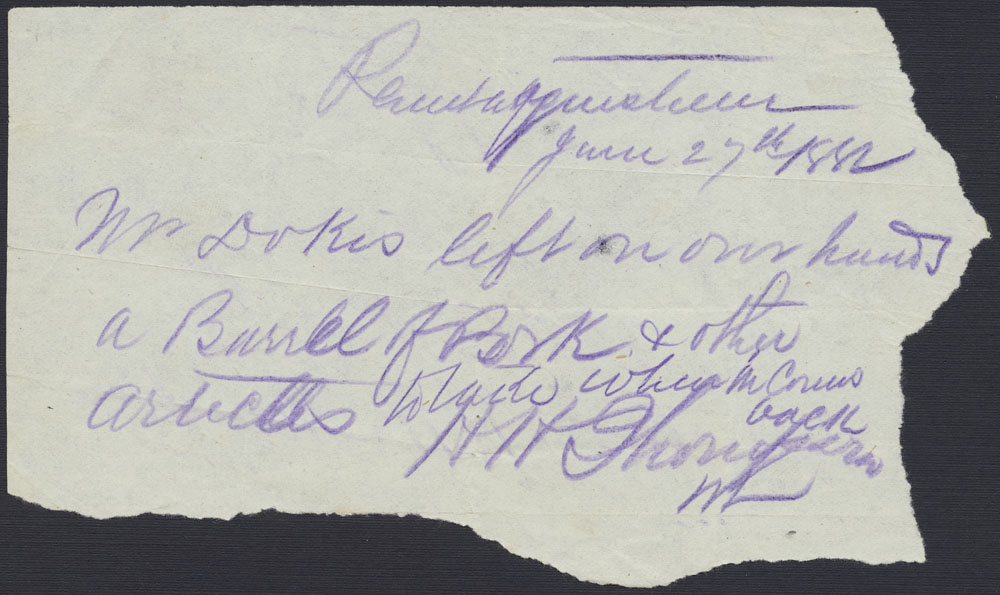 Penetanguishene
June 27th 1882
Mr Dokis left on our hands
a Barrel of Pork & other
articles to take when he comes
back
H H Thompson